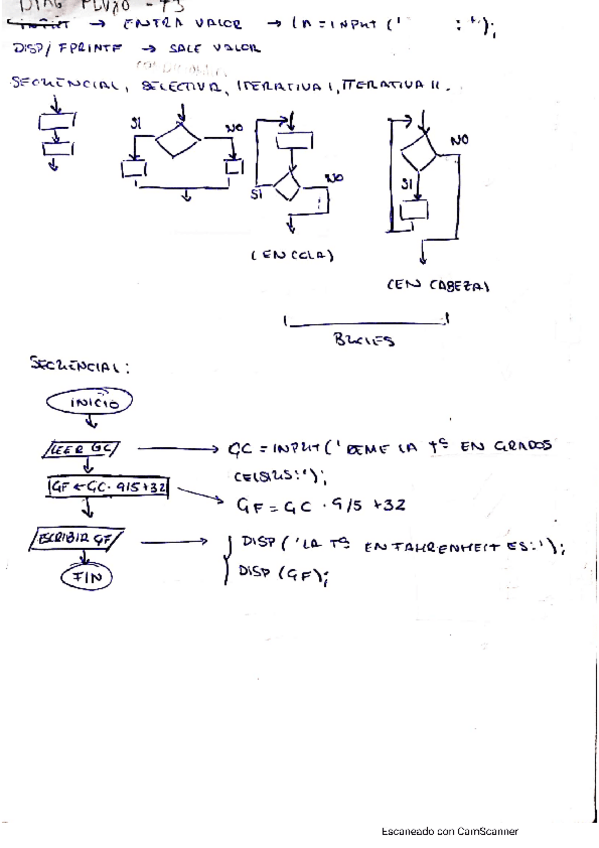 DIAG FLUJO - T3
INPUT → ENTRA VALOR → IA = INPUT (' : ');
DISP/ FPRINTF → SALE VALOR
SECUENCIAL, SELECTIVA, ITERATIVA I, ITERATIVA II.
SI NO
NO
SI
NO
SI
(EN COLA)
(EN CABEZA)
BUCLES
SECUENCIAL:
INICIO
LEER GC → GC = INPUT (' DEME LA Tº EN GRADOS
CELSIUS:');
GF ← GC · 9/5 + 32
GF = GC · 9/5 + 32
ESCRIBIR GF → DISP ('LA Tº EN FAHRENHEIT ES:');
DISP (GF);
FIN
Escaneado con CamScanner